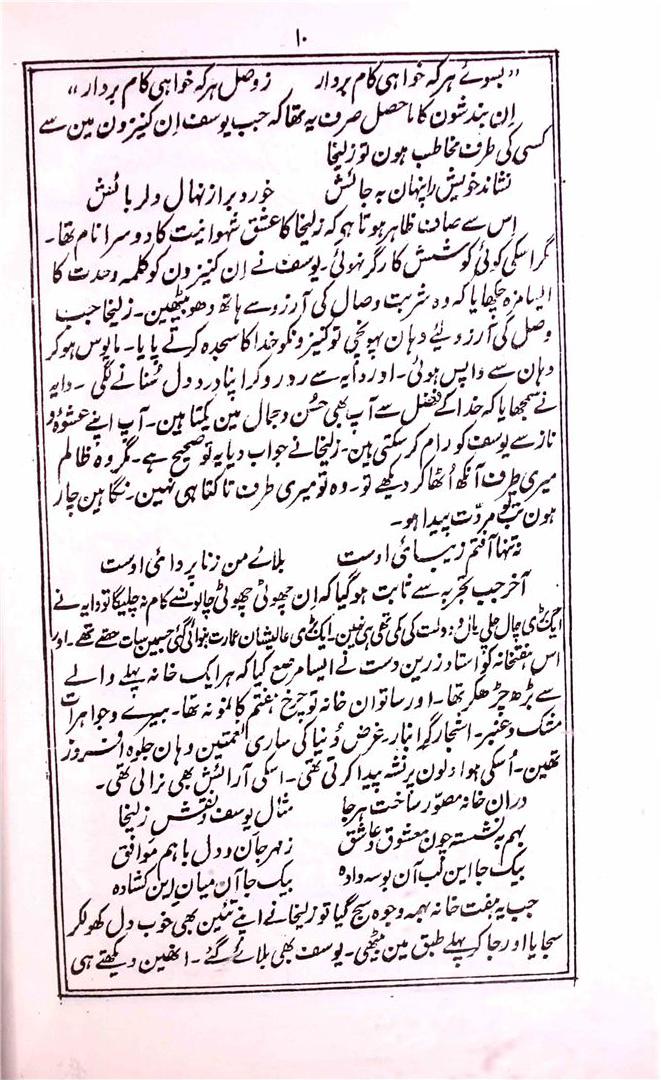 ۱۰
"بسوے ہرکہ خواہی کام بردار     زوصل ہرکہ خواہی کام بردار"
اِن بندشون کا ماحصل صرف یہ تھا کہ جب یوسف اِن کنیزون مین سے
کسی کی طرف مخاطب ہون تو زلیخا
نشاند خویش را پنہان بہ جائش     خورد بر از نہال دلربائش
اِس سے صاف ظاہر ہوتا ہو کہ زلیخا کا عشق شہوانیت کا دوسرا نام تھا۔
مگر اسکی کوئی کوشش کارگر نہوئی۔ یوسف نے اِن کنیزون کو کلمہ وحدت کا
ایسا مزہ چکھایا کہ وہ شربت وصال کی آرزو سے ہاتھ دھو بیٹھین۔ زلیخا جب
وصل کی آرزو لیے وہان پہونچی تو کنیزونکو خدا کا سجدہ کرتے پایا۔ مایوس ہوکر
وہان سے واپس ہوئی۔ اور دایہ سے رو رو کر اپنا درد دل سُنانے لگی۔ دایہ
نے سمجھایا کہ خدا کے فضل سے آپ بھی حُسن و جمال مین یکتا ہین۔ آپ اپنے عشوہ و
ناز سے یوسف کو رام کرسکتی ہین۔ زلیخا نے جواب دیا یہ تو صحیح ہے۔ مگر وہ ظالم
میری طرف آنکھ اُٹھا کر دیکھے تو۔ وہ تو میری طرف تاکتا ہی نہین۔ نگاہین چار
ہون تب تو مروّت پیدا ہو۔
نہ تنہا آفتم زیبائی اوست     بلاے من زنا پروائی اوست
آخر جب تجربہ سے ثابت ہوگیا کہ اِن چھوٹی چھوٹی چالونسے کام نہ چلیگا تو دایہ نے
ایک بڑی چال چلی۔ دولت کی کمی تھی ہی نہین۔ ایک بڑی عالیشان عمارت بنوائی گئی جسمین سات حصے تھے۔ اور
اس ہفتخانہ کو استاد زرین دست نے ایسا مرصع کیا کہ ہر ایک خانہ پہلے والے
سے بڑھ چڑھکر تھا۔ اور ساتوان خانہ تو چرخ ہفتم کا نمونہ تھا۔ ہیرے و جواہرات
مشک و عنبر۔ اشجار گرانبار۔ غرض دُنیا کی ساری نعمتین وہان جلوہ افروز
تھین۔ اُسکی ہوا دلون پر نشہ پیدا کرتی تھی۔ اسکی آرائش بھی نرالی تھی۔
دران خانہ مصوّر ساخت ہر جا     مثال یوسف و نقش زلیخا
بہم بنشستہ چون معشوق و عاشق     زمہر جان و دل باہم موافق
بیک جا این لب آن بوسہ دادہ     بیک جا آن میان این کشادہ
جب یہ ہفت خانہ بہمہ وجوہ سج گیا تو زلیخا نے اپنے تئین بھی خوب دل کھولکر
سجایا اور جاکر پہلے طبق مین بیٹھی۔ یوسف بھی بلائے گئے۔ انھین دیکھتے ہی